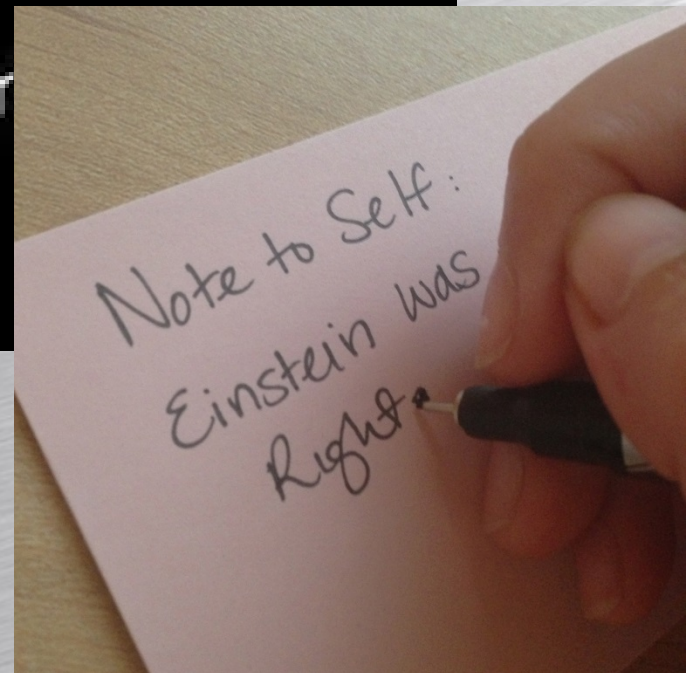 Note to Self:
Einstein was
Right.